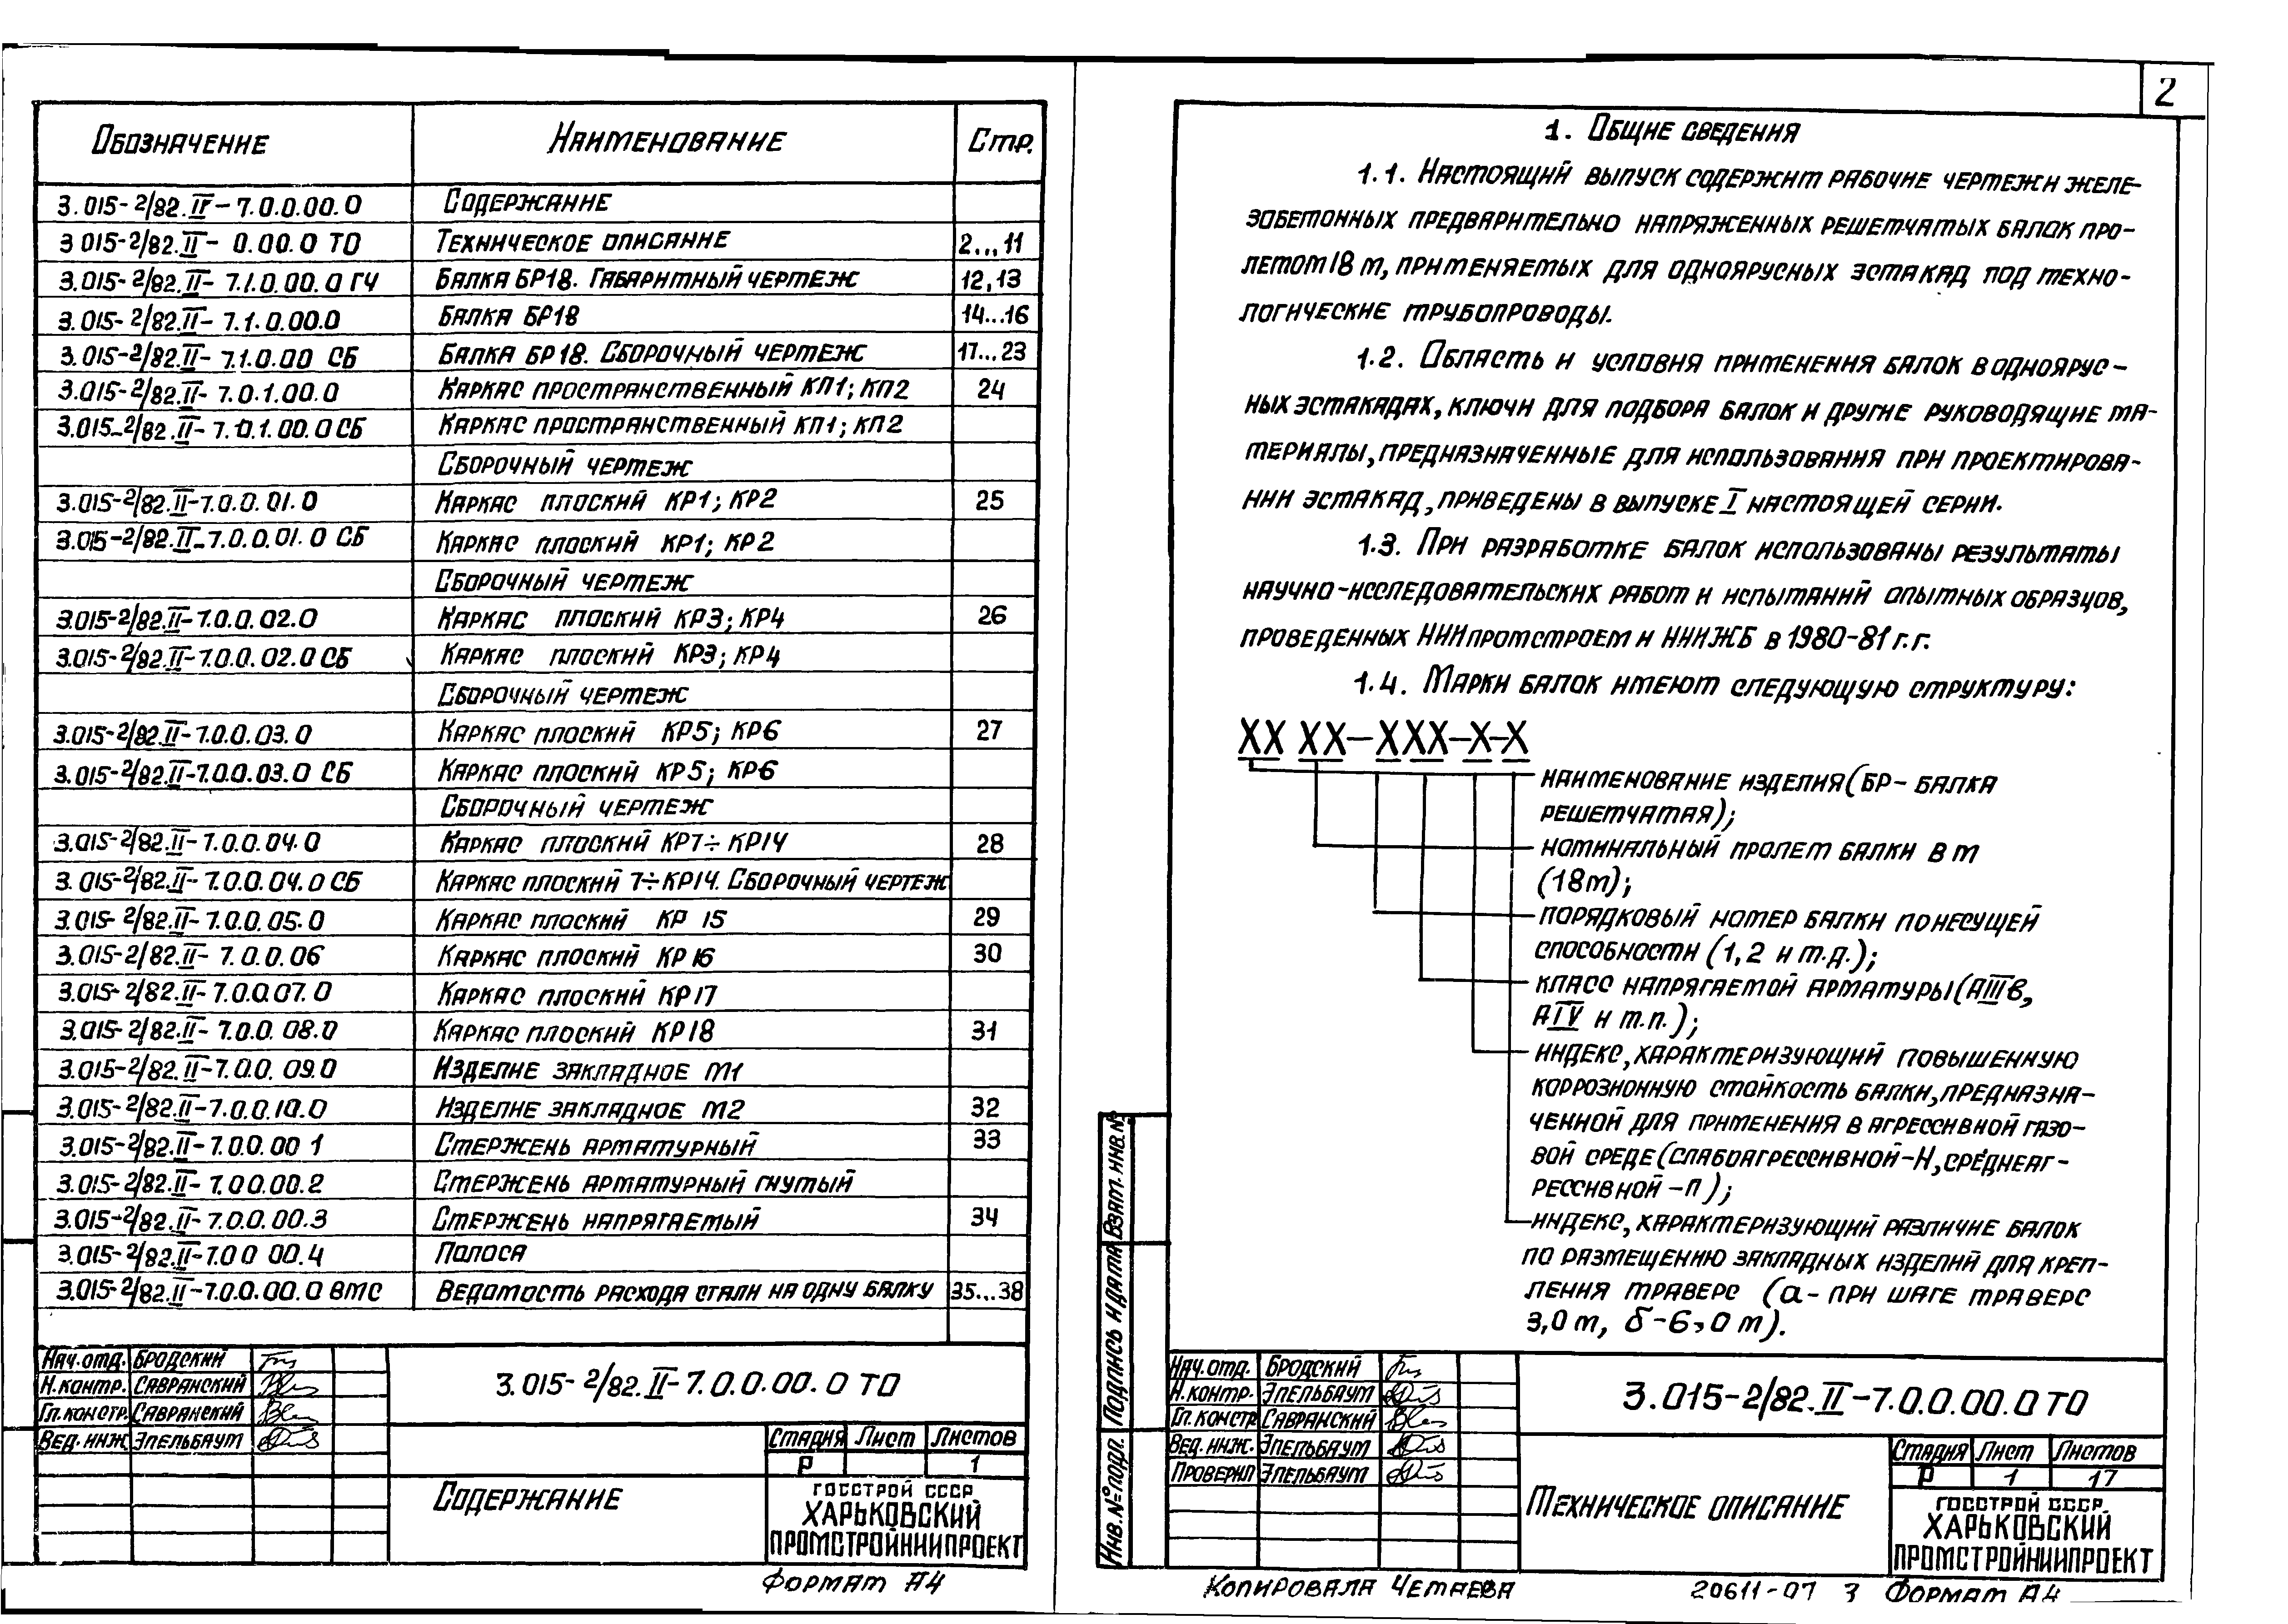 Обозначение Наименование Стр.
3.015-2/82.II-7.0.0.00.0 Содержание
3 015-2/82.II- 0.00.0 ТО Техническое описание 2...11
3.015-2/82.II-7.1.0.00.0 ГЧ Балка БР18. Габаритный чертеж 12,13
3.015-2/82.II-7.1.0.00.0 Балка БР18 14...16
3.015-2/82.II-7.1.0.00 СБ Балка БР18. Сборочный чертеж 17...23
3.015-2/82.II-7.0.1.00.0 Каркас пространственный КП1; КП2 24
3.015-2/82.II-7.0.1.00.0 СБ Каркас пространственный КП1; КП2
Сборочный чертеж
3.015-2/82.II-7.0.0.01.0 Каркас плоский КР1; КР2 25
3.015-2/82.II-7.0.0.01.0 СБ Каркас плоский КР1; КР2
Сборочный чертеж
3.015-2/82.II-7.0.0.02.0 Каркас плоский КР3; КР4 26
3.015-2/82.II-7.0.0.02.0 СБ Каркас плоский КР3; КР4
Сборочный чертеж
3.015-2/82.II-7.0.0.03.0 Каркас плоский КР5; КР6 27
3.015-2/82.II-7.0.0.03.0 СБ Каркас плоский КР5; КР6
Сборочный чертеж
3.015-2/82.II-7.0.0.04.0 Каркас плоский КР7÷КР14 28
3.015-2/82.II-7.0.0.04.0 СБ Каркас плоский 7÷КР14. Сборочный чертеж
3.015-2/82.II-7.0.0.05.0 Каркас плоский КР 15 29
3.015-2/82.II-7.0.0.06 Каркас плоский КР 16 30
3.015-2/82.II-7.0.0.07.0 Каркас плоский КР17
3.015-2/82.II-7.0.0.08.0 Каркас плоский КР18 31
3.015-2/82.II-7.0.0.09.0 Изделие закладное М1
3.015-2/82.II-7.0.0.10.0 Изделие закладное М2 32
3.015-2/82.II-7.0.0.00 1 Стержень арматурный 33
3.015-2/82.II-7.0 0.00.2 Стержень арматурный гнутый
3.015-2/82.II-7.0.0.00.3 Стержень напрягаемый 34
3.015-2/82.II-7.0 0 00.4 Полоса
3.015-2/82.II-7.0.0.00.0 ВМС Ведомость расхода стали на одну балку 35...38
Нач.отд. Бродский
Н.контр. Савранский
Гл.констр. Савранский
Вед.инж. Эпельбаум
3.015-2/82.II-7.0.0.00.0 ТО
Стадия Лист Листов
Р 1
Содержание
Госстрой СССР
Харьковский
Промстройниипроект
Формат А4
2
1. Общие сведения
1.1. Настоящий выпуск содержит рабочие чертежи желе-
зобетонных предварительно напряженных решетчатых балок про-
летом 18 м, применяемых для одноярусных эстакад под техно-
логические трубопроводы.
1.2. Область и условия применения балок в одноярус-
ных эстакадах, ключи для подбора балок и другие руководящие ма-
териалы, предназначенные для использования при проектирова-
нии эстакад, приведены в выпуске I настоящей серии.
1.3. При разработке балок использованы результаты
научно-исследовательских работ и испытаний опытных образцов,
проведенных НИИпромстроем и НИИЖБ в 1980-81 г.г.
1.4. Марки балок имеют следующую структуру:
XX XX-XXX-X-X
наименование изделия (БР- балка
решетчатая);
номинальный пролет балки в м
(18м);
порядковый номер балки по несущей
способности (1,2 и т.д.);
класс напрягаемой арматуры (АIIIв,
АIV и т.п.);
индекс, характеризующий повышенную
коррозионную стойкость балки, предназна-
ченной для применения в агрессивной газо-
вой среде (слабоагрессивной-Н, среднеаг-
рессивной -П);
индекс, характеризующий различие балок
по размещению закладных изделий для креп-
ления траверс (а- при шаге траверс
3,0 м, б-6,0 м).
Инв.№подл. Подпись и дата Взам.инв.№
Нач.отд. Бродский
Н.контр. Эпельбаум
Гл.констр. Савранский
Вед.инж. Эпельбаум
Проверил Эпельбаум
3.015-2/82.II-7.0.0.00.0 ТО
Стадия Лист Листов
Р 1 17
Техническое описание
Госстрой СССР
Харьковский
Промстройниипроект
Копировала Четаева 20611-07 3 Формат А4